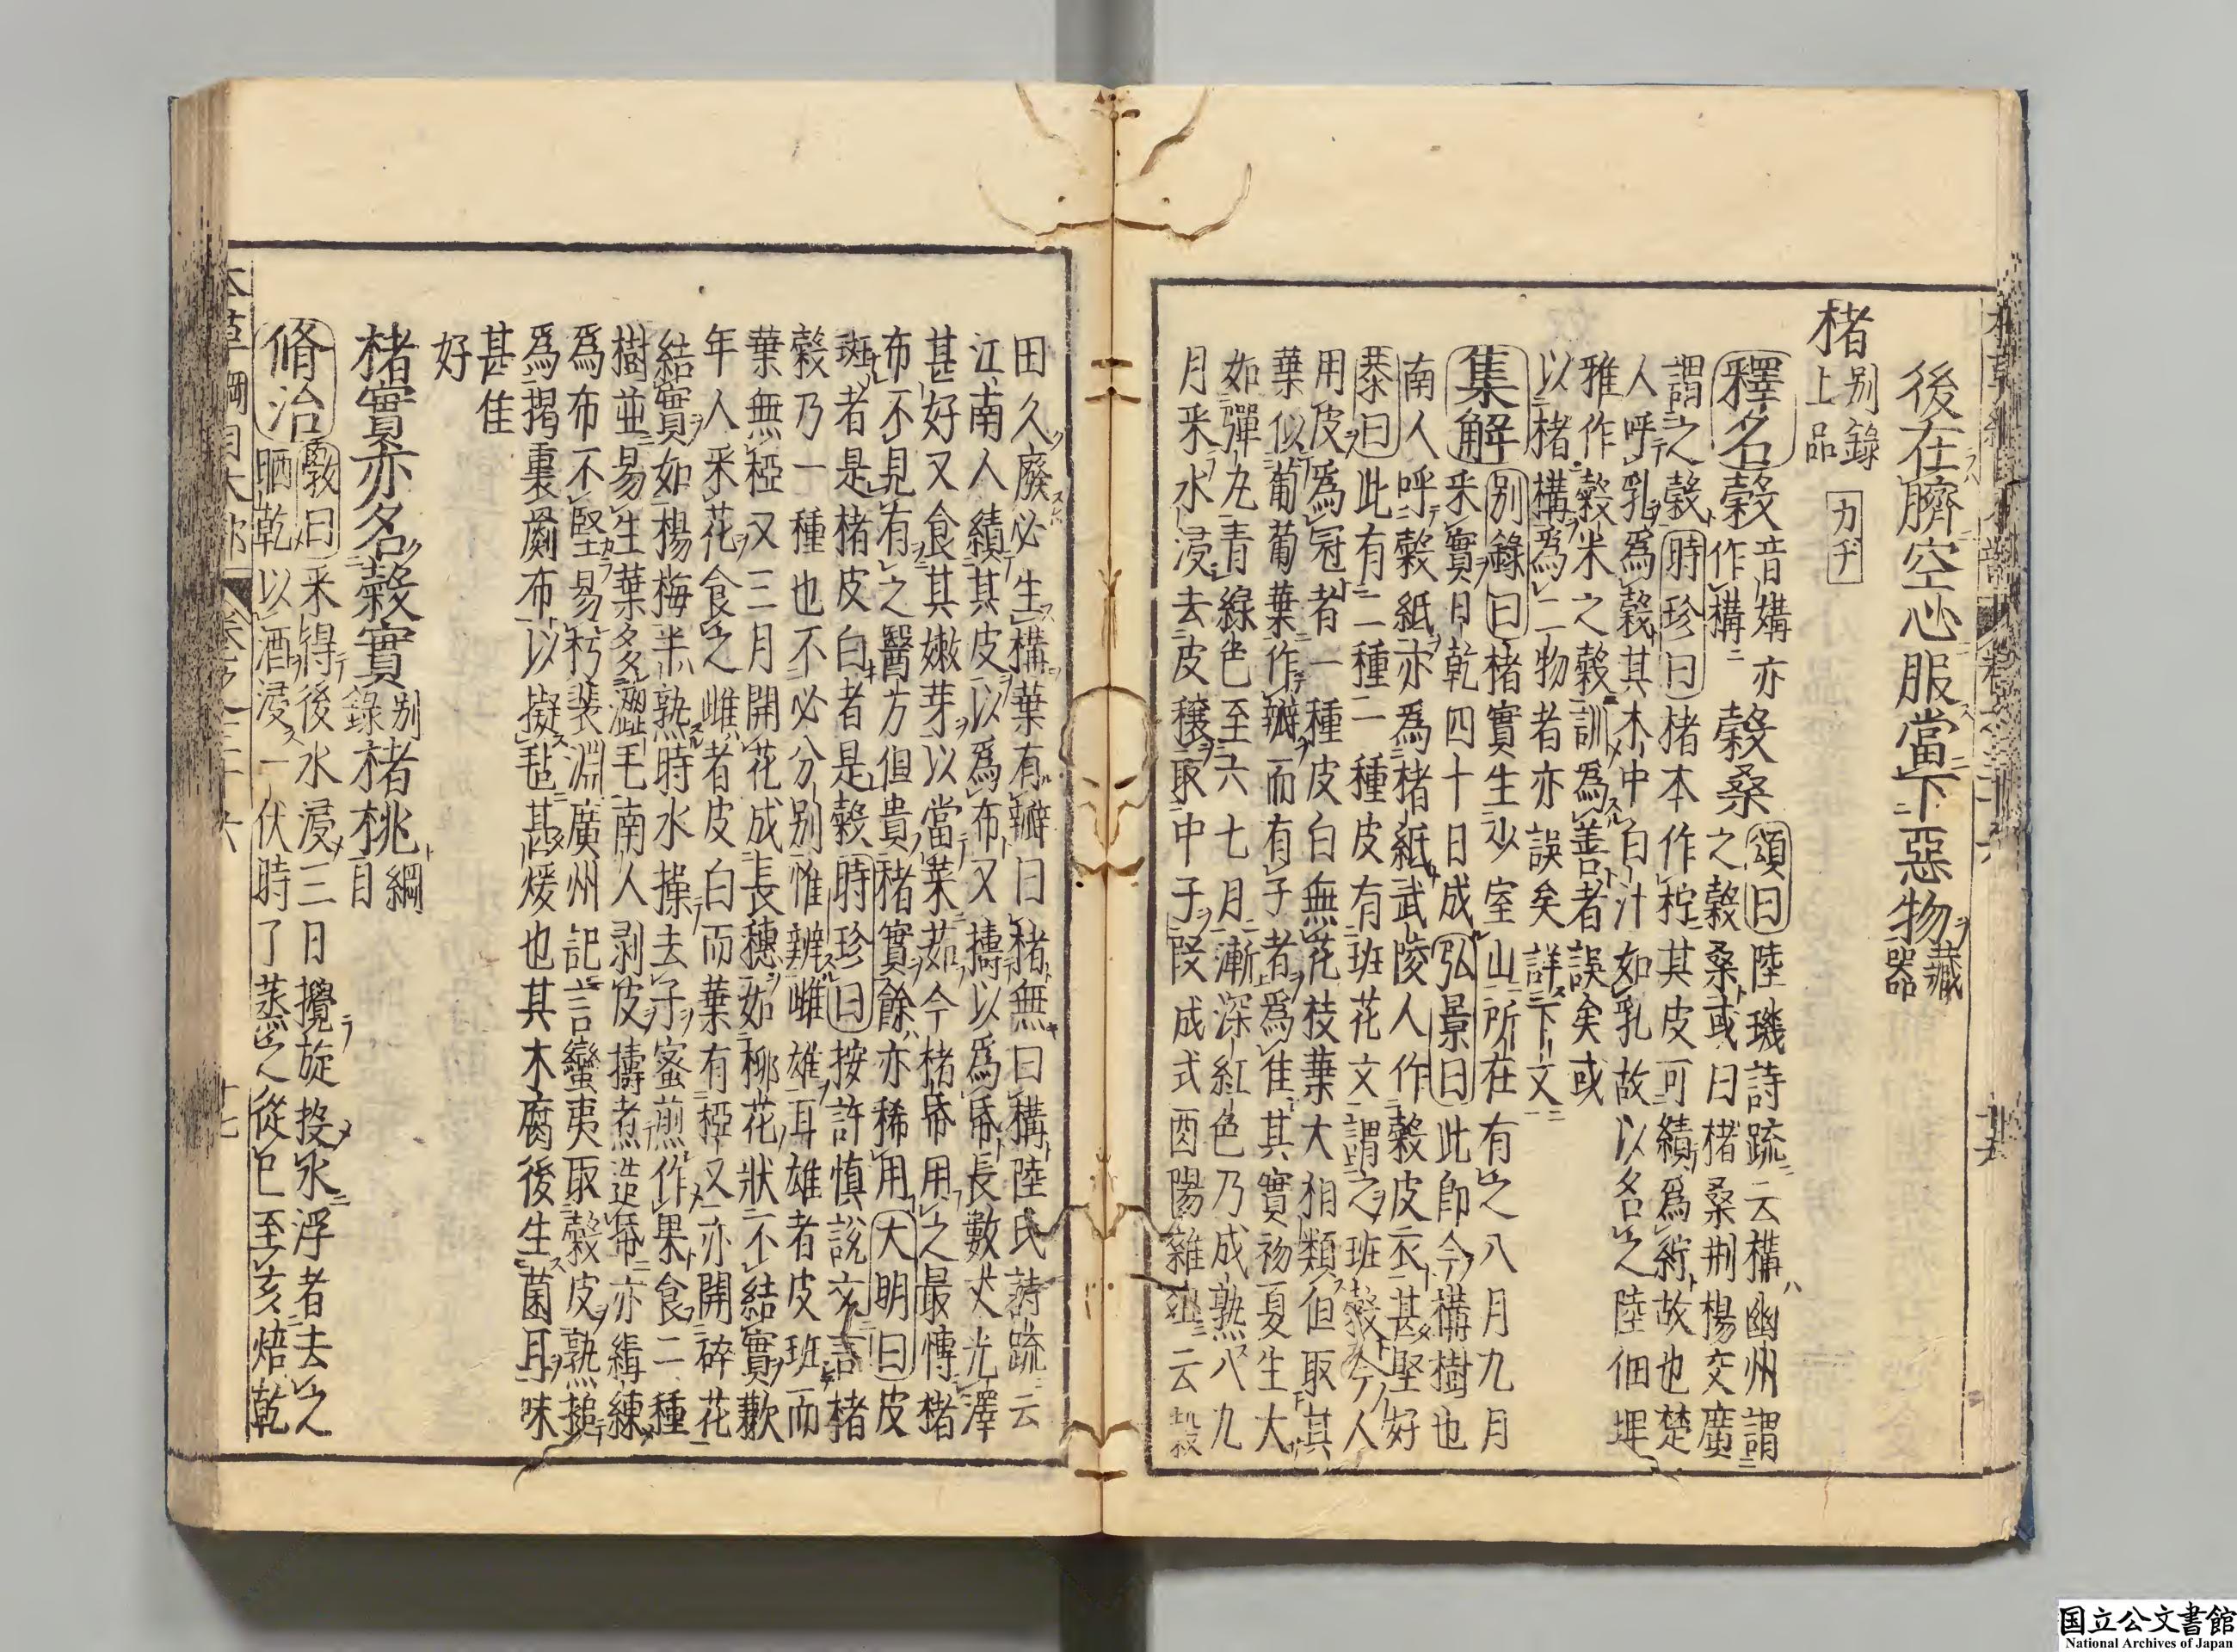 後在臍空心服當下惡物藏器
楮別錄上品 カヂ
釋名 穀音媾亦作構 穀桑 頌曰陸璣詩疏云構幽州謂
之穀桑或曰楮桑荆楊交廣
謂之穀時珍曰楮本作柠其皮可績爲紵故也楚
人呼乳爲穀其木中白汁如乳故以名之陸佃埤
雅作穀米之穀訓爲善者誤矣或
以楮構爲二物者亦誤矣詳下文
集解 別錄曰楮實生少室山所在有之八月九月
采實日乾四十日成弘景曰此即今構樹也
南人呼穀紙亦爲楮紙武陵人作穀皮衣甚堅好
恭曰此有二種一種皮有班花文謂之班穀今人
用皮爲冠者一種皮白無花枝葉大相類但取其
葉似葡萄葉作瓣而有子者爲佳其實初夏生大
如彈丸青綠色至六七月漸深紅色乃成熟八九
月采水浸去皮穣取中子段成式酉陽雜俎云穀
田久廢必生構葉有瓣曰楮無曰構陸氏詩疏云
江南人績其皮以爲布又擣以爲帋長數丈光澤
甚好又食其嫩芽以當菜茹今楮帋用之最慱楮
布不見有之醫方但貴楮實餘亦稀用大明曰皮
斑者是楮皮白者是穀時珍曰按許慎說文言楮
穀乃一種也不必分別惟辨雌雄耳雄者皮班而
葉無椏又三月開花成長穗如柳花狀不結實歉
年人采花食之雌者皮白而葉有椏又亦開碎花
結實如楊梅半熟時水操去子蜜煎作果食二種
樹並易生葉多澀毛南人剥皮擣煮造帋亦緝練
爲布不堅易朽裴淵廣州記言蠻夷取穀皮熟搥
爲揭裏罽布以擬毡甚煖也其木腐後生菌耳味
甚佳
好
楮實亦名穀實別錄楮桃綱目
脩治 斆曰采得後水浸三日攪旋投水浮者去之
晒乾以酒浸一伏時了蒸之從巳至亥焙乾
国立公文書館
National Archives of Japan